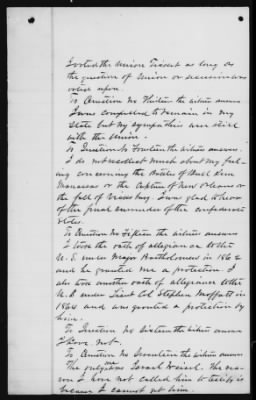 I voted the Union Ticket as long as
the question of Union or secession was
voted upon.
To Question No Thirteen the witness answers
I was compelled to remain in my
State but my sympathies were still
with the Union.
To Question No Fourteen the witness answers.
I do not recollect much about my feel-
ing concerning the Battle of Bull Run
Manassas or the Capture of New Orleans or
the fall of Vicksburg. I was glad when
of the final surrender of the confederate
States.
To Question No Fifteen the witness answers
I took the oath of allegiance to the
U. S. under Major Bartholomew in 1862
and he granted me a protection. I
also took another oath of allegiance to the
U. S. under Lieut Col Stephen Moffatt in
1864 and was granted a protection by
him.
To Question No Sixteen the witness answers
I have not.
To Question No Seventeen the witness answers
The only one Israel The rea-
son I have not called him to testify is
because I cannot get him.